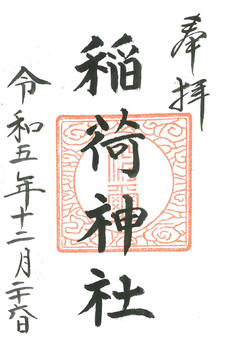 奉拝
稲荷神社
令和五年十二月二十六日